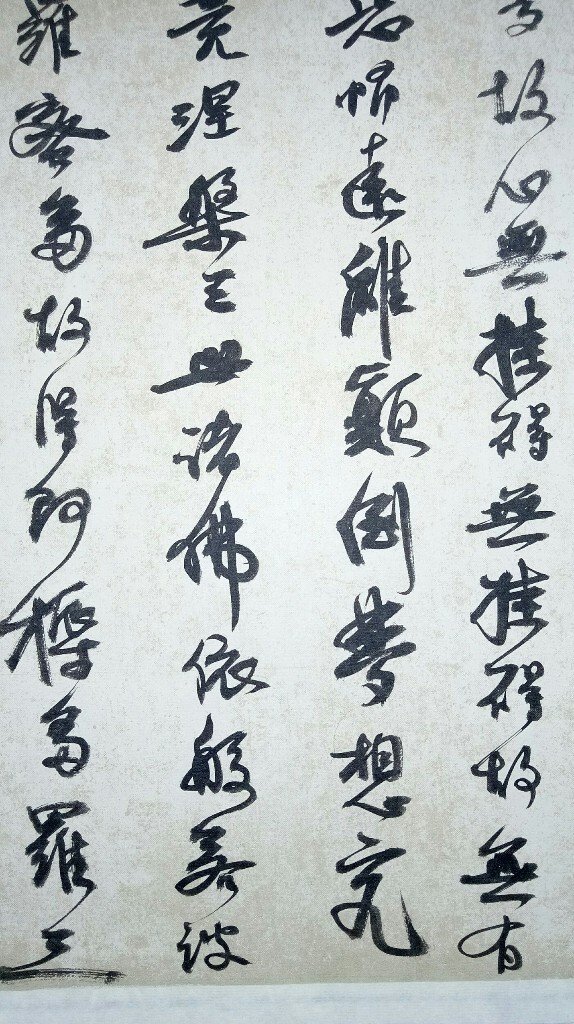 故心無挂碍無挂碍故無有
恐怖遠離顛倒夢想究
竟涅槃三世諸佛依般若波
羅密多故得阿耨多羅三